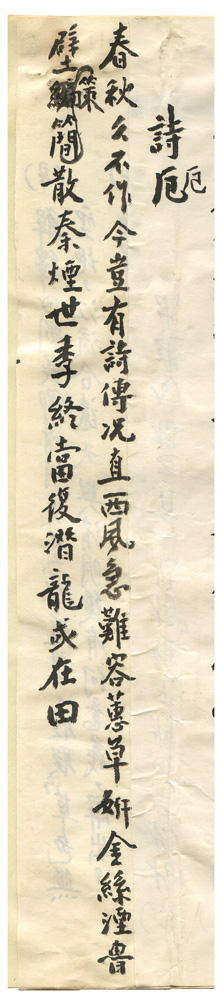 詩厄
厄
春秋久不作今豈有詩傳况直西風急難容蕙草妍金絲湮魯
壁編簡散秦煙世季終當復潛龍或在田
策